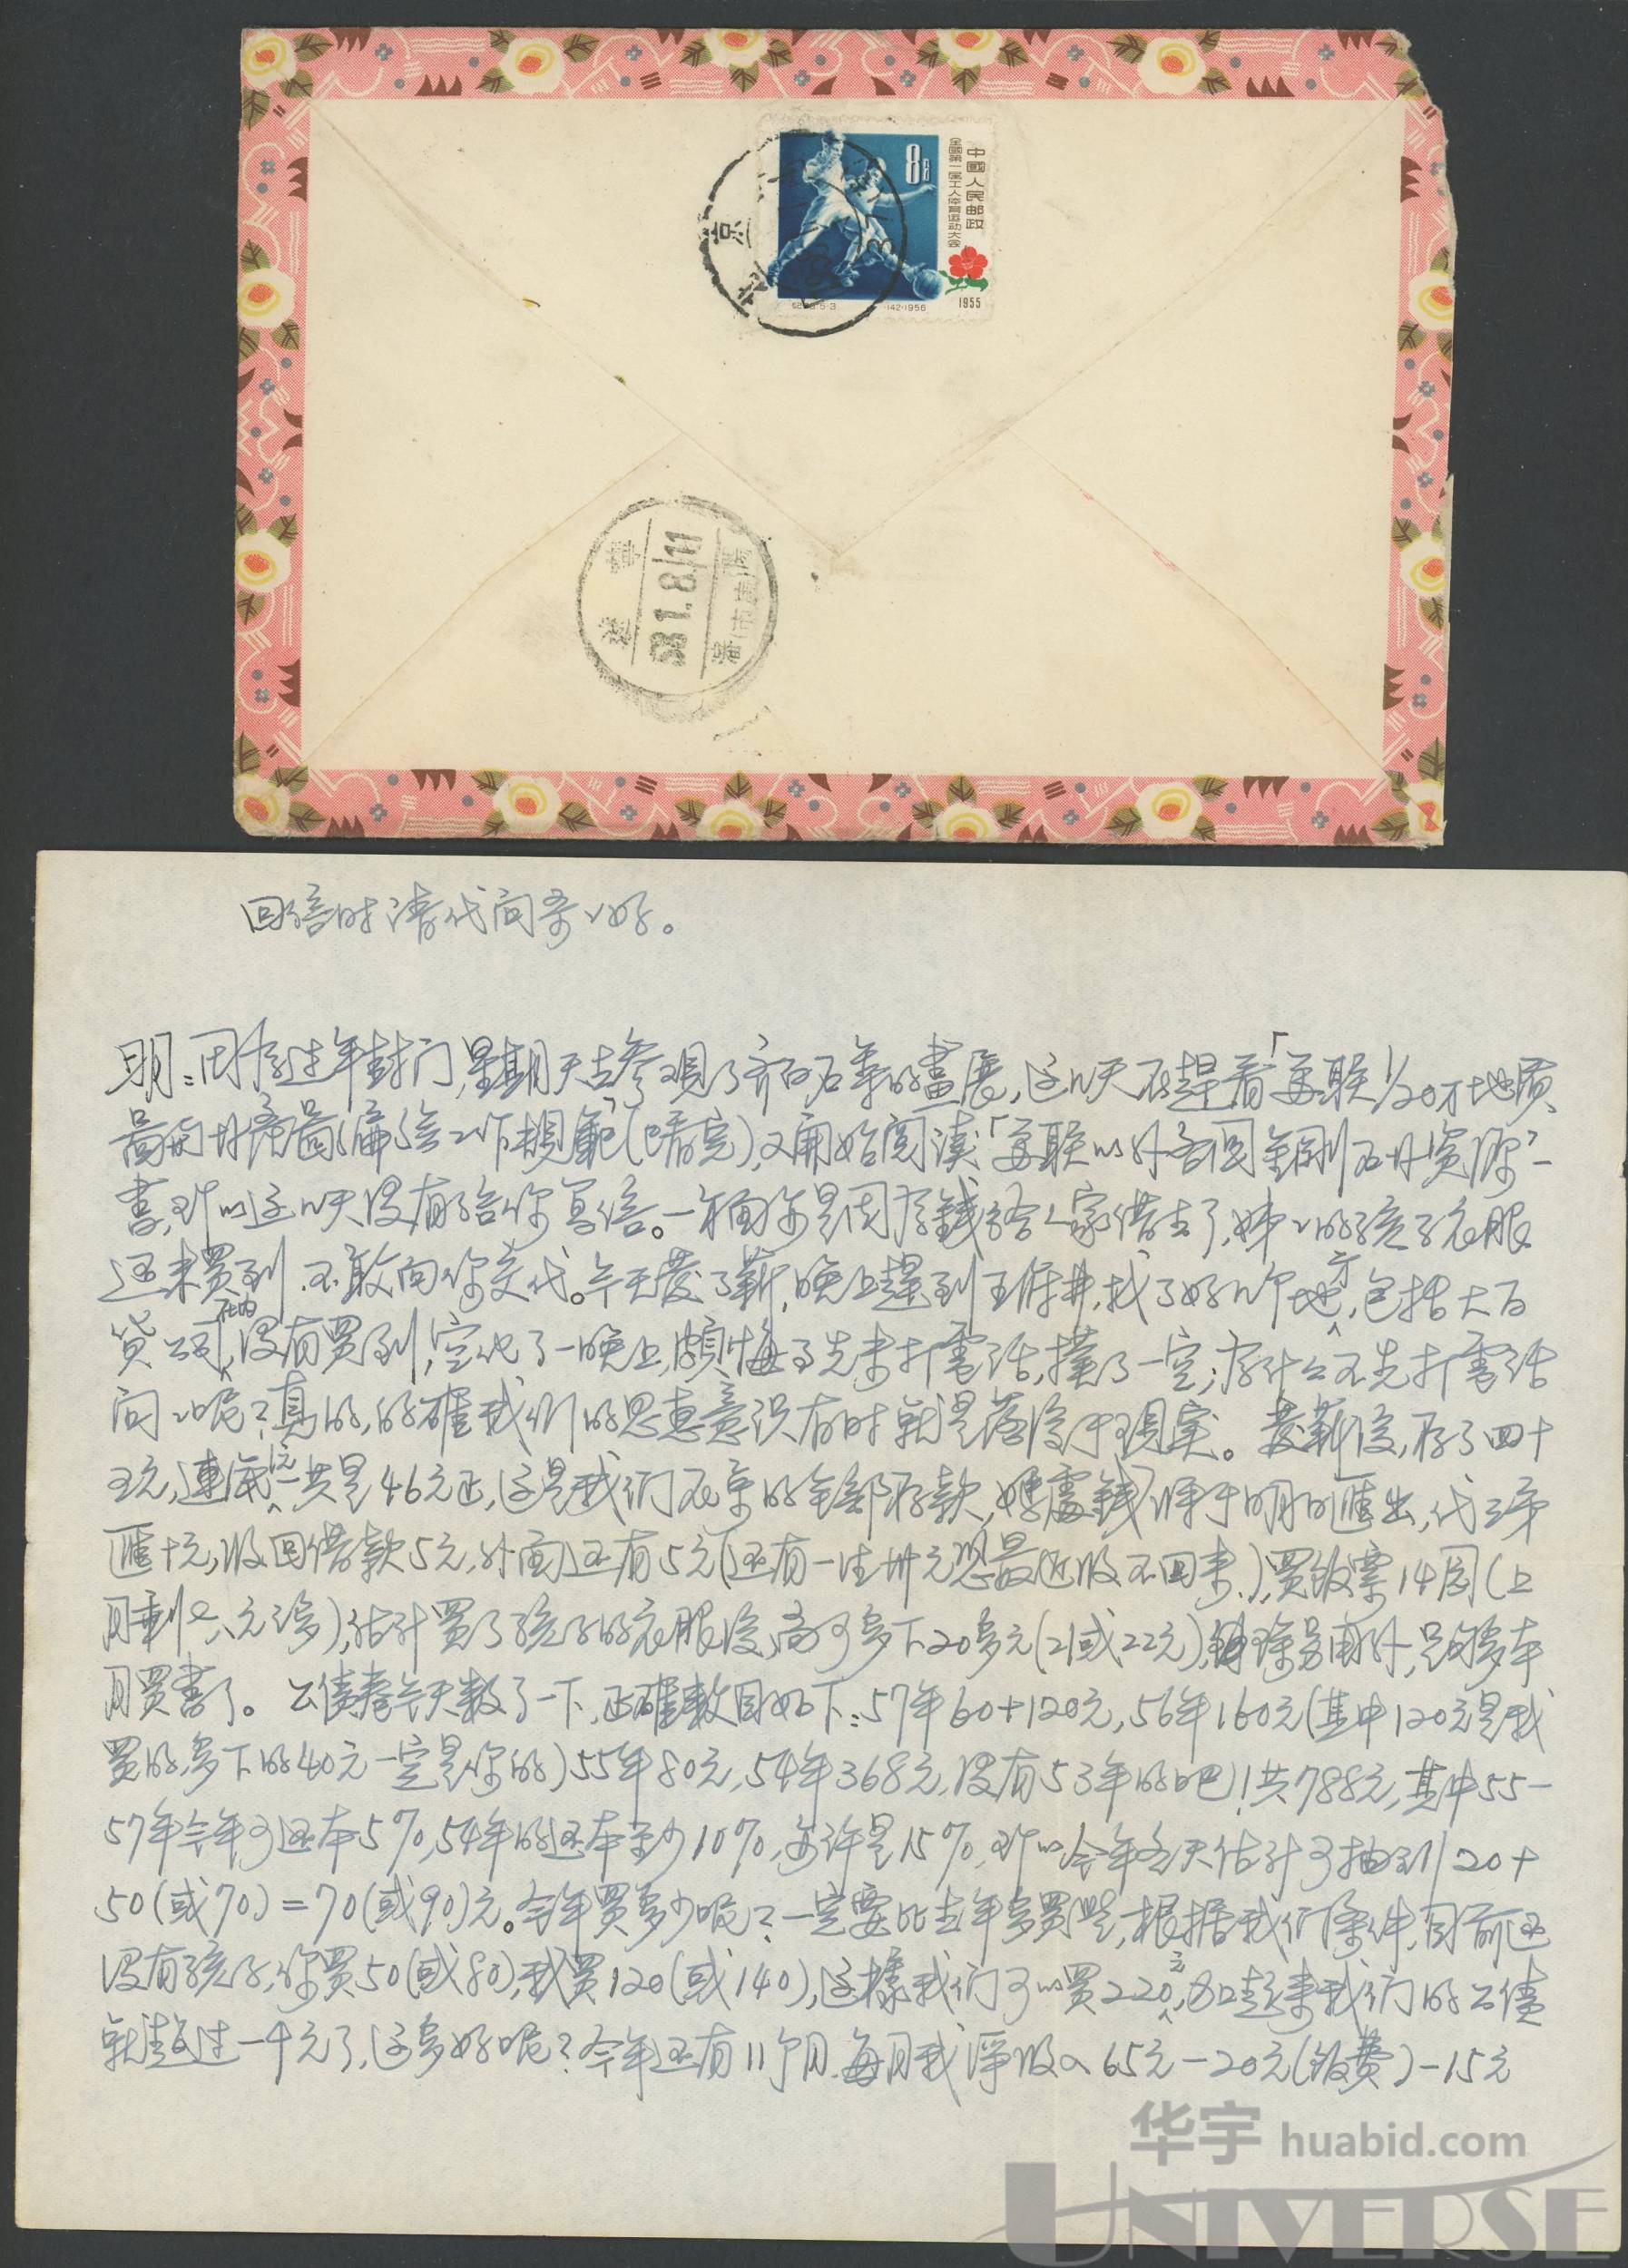 中國人民邮政
全國第一届工人体育運动大会
8分
1955
142·1956
北京
58.1.8.11
回信时请代问爹々好。
明：因为过年封门，星期天去参观了齐白石年的畫展，这几天在趕看「苏联1/20万地质
(已看完)，又開始閱读「苏联以外各国金刚石矿資源」一
書，所以这几天没有给你写信。一方面亦是因为錢给人家借去了，姊々的孩子衣服
还未買到，不敢向你交代。今天發了薪，晚上趕到王府井，找了好几个地方，包括大百
貨公司在内，没有買到，空化了一晚上，頗悔了先未打電话，撲了一空，为什么不先打電话
问々呢？真的，的確我们的思惠意识有时就是落後于現实。發薪後，存了四十
五元，連底1元一共是46元正，这是我们在京的全部存款，媽處錢準于明日匯出，代三弟
匯十元，收回借款5元，外面还有5元(还有一法卅元恐最近收不回来)，買飯票14元(上
月剩六元多)，估计買了孩子的衣服後，尚可多下20多元(21或22元)，除另用外，只够本
月買書了。公債卷今天数了一下，正確数目如下：57年60+120元，56年160元(其中120元是我
買的，多下的40元一定是你的)55年80元，54年368元，没有53年的吧！共788元，其中55-
57年今年可还本5%，54年的还本至少10%，或许是15%，所以今年冬天估计可抽到20+
50(或70)=70(或90)元。今年買多少呢？一定要比去年多買些，根据我们條件，目前还
没有孩子，你買50(或80)，我買120(或140)，这樣我们可以買220元，加起来我们的公債
就超过一千元了，这多好呢？今年还有11个月，每月我淨收入65元-20元(飯費)-15元
华宇 huabid.com
UNIVERSE